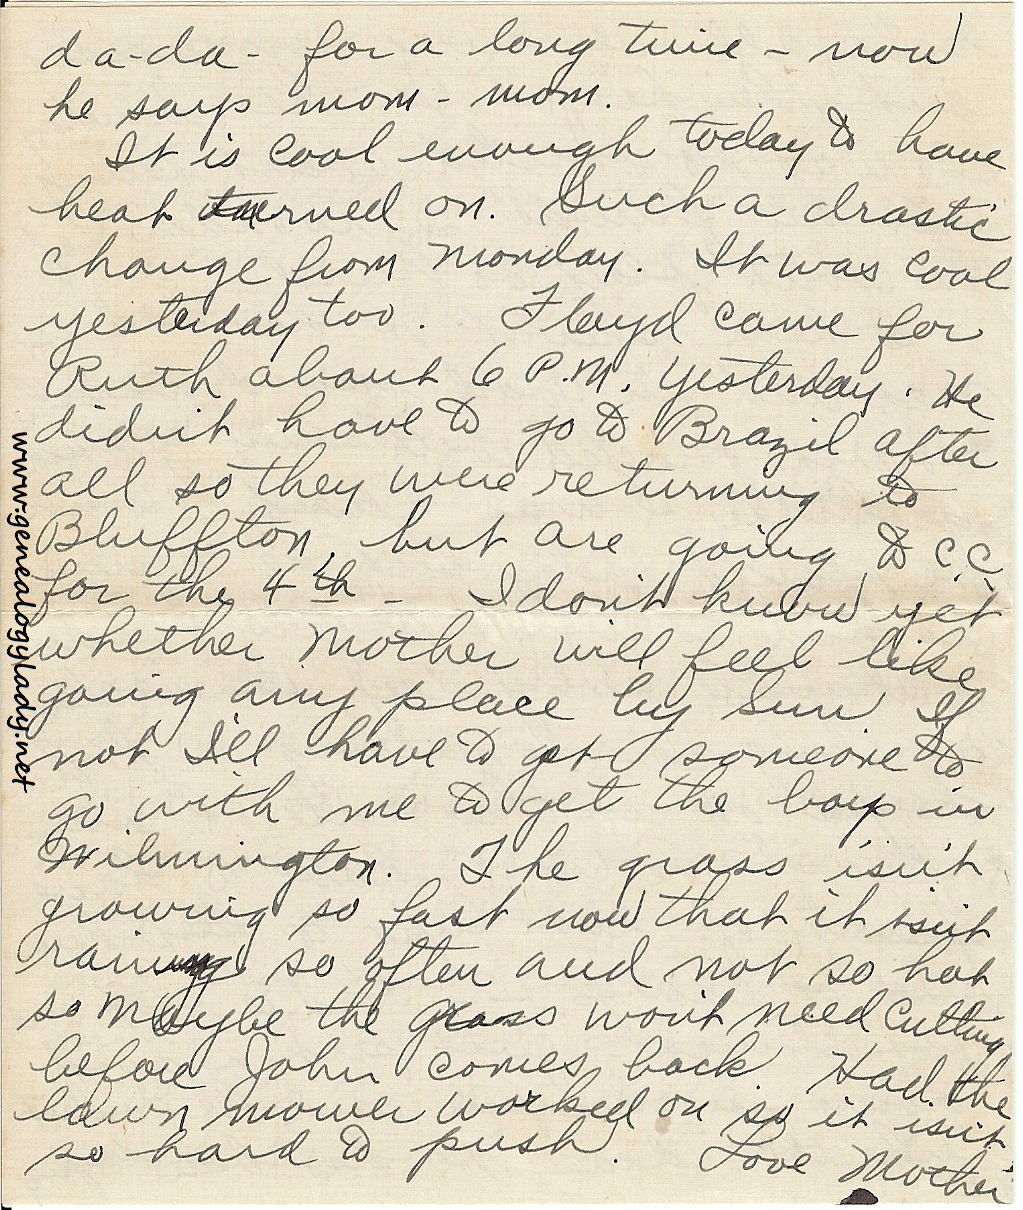 da-da- for a long time - now
he says mom - mom.
It is cool enough today to have
heat turned on. Such a drastic
change from Monday. It was cool
yesterday too. Floyd came for
Ruth about 6 P.M. yesterday. He
didn't have to go to Brazil after
all so they were returning to
Bluffton, but are going to C.C.
for the 4th - I don't know yet
whether Mother will feel like
going any place by Sun If
not I'll have to get someone to
go with me to get the boys in
Wilmington. The grass isn't
growing so fast now that it isn't
raining so often and not so hot
so maybe the grass won't need cutting
before John comes back. Had the
lawn mower worked on so it isn't
so hard to push. Love Mother
www.genealogylady.net